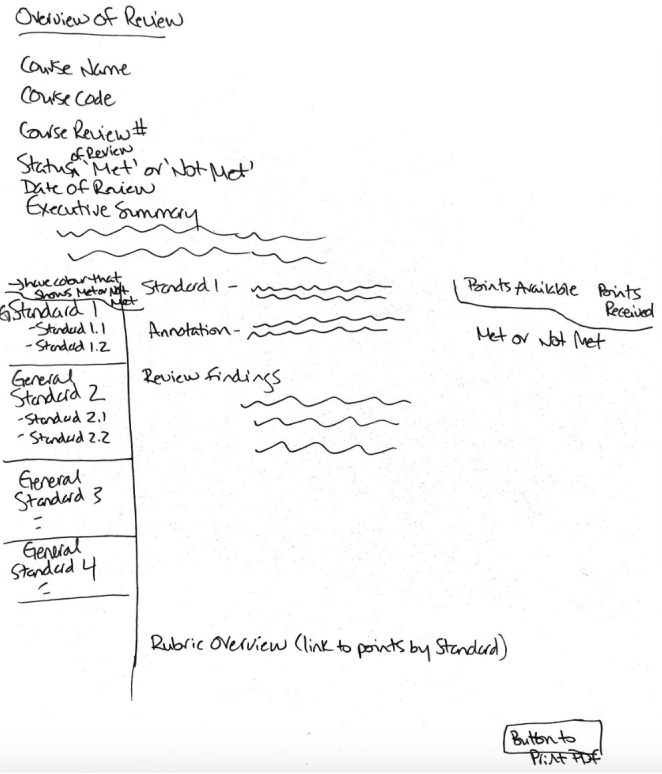 Overview of Review
Course Name
Course Code
Course Review #
of Review
Status 'Met' or 'Not Met'
Date of Review
Executive Summary
→ have colour that
shows Met or Not
Met
G Standard 1
- Standard 1.1
- Standard 1.2
General
Standard 2
- Standard 2.1
- Standard 2.2
General
Standard 3
General
Standard 4
Standard 1 -
Annotation -
Review findings
Points Available Points
Received
Met or Not Met
Rubric Overview (link to points by Standard)
Button to
Print PDF